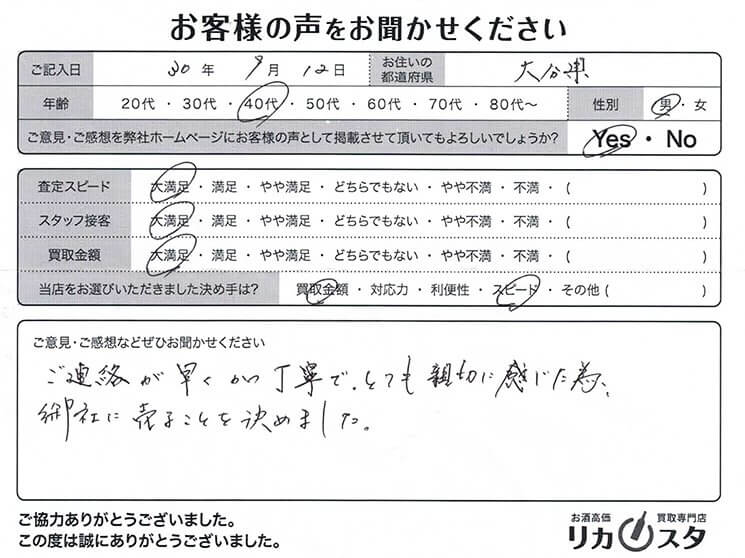 お客様の声をお聞かせください
ご記入日 30年 9月 12日 お住いの都道府県 大分県
年齢 20代 ・ 30代 ・ 40代 ・ 50代 ・ 60代 ・ 70代 ・ 80代〜 性別 男 ・ 女
ご意見・ご感想を弊社ホームページにお客様の声として掲載させて頂いてもよろしいでしょうか? Yes ・ No
査定スピード 大満足 ・ 満足 ・ やや満足 ・ どちらでもない ・ やや不満 ・ 不満 ・ ( )
スタッフ接客 大満足 ・ 満足 ・ やや満足 ・ どちらでもない ・ やや不満 ・ 不満 ・ ( )
買取金額 大満足 ・ 満足 ・ やや満足 ・ どちらでもない ・ やや不満 ・ 不満 ・ ( )
当店をお選びいただきました決め手は? 買取金額 ・ 対応力 ・ 利便性 ・ スピード ・ その他 ( )
ご意見・ご感想などぜひお聞かせください
ご連絡が早くかつ丁寧で、とても親切に感じた為、
御社に売ることを決めました。
ご協力ありがとうございました。
この度は誠にありがとうございました。
お酒高価 買取専門店
リカスタ